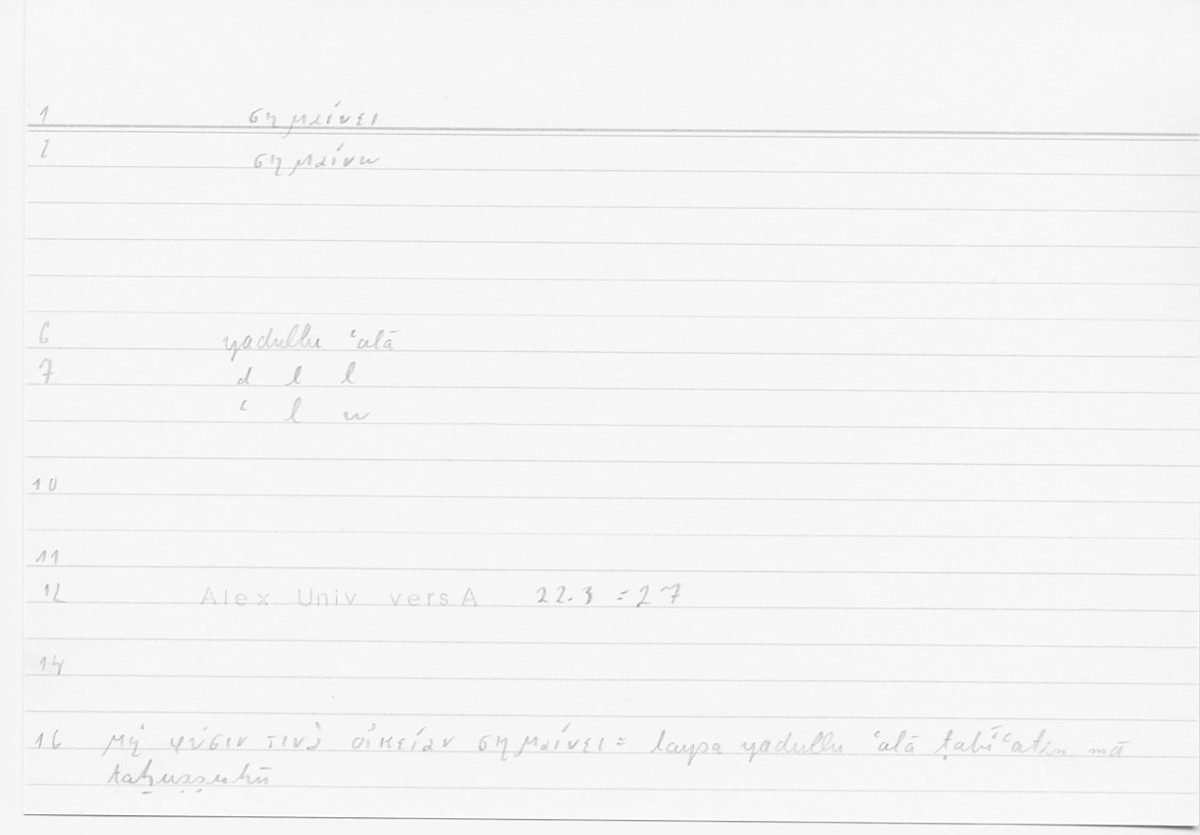 1 σημαίνει
2 σημαίνω
6 yadullu ʿalā
7 d l l
ʿ l w
10
11
12 Alex Univ vers A 22.3 = 27
14
16 μὴ φύσιν τινὰ οἰκείαν σημαίνει = laysa yadullu ʿalā ṭabīʿatin mā
taḫuṣṣuhū